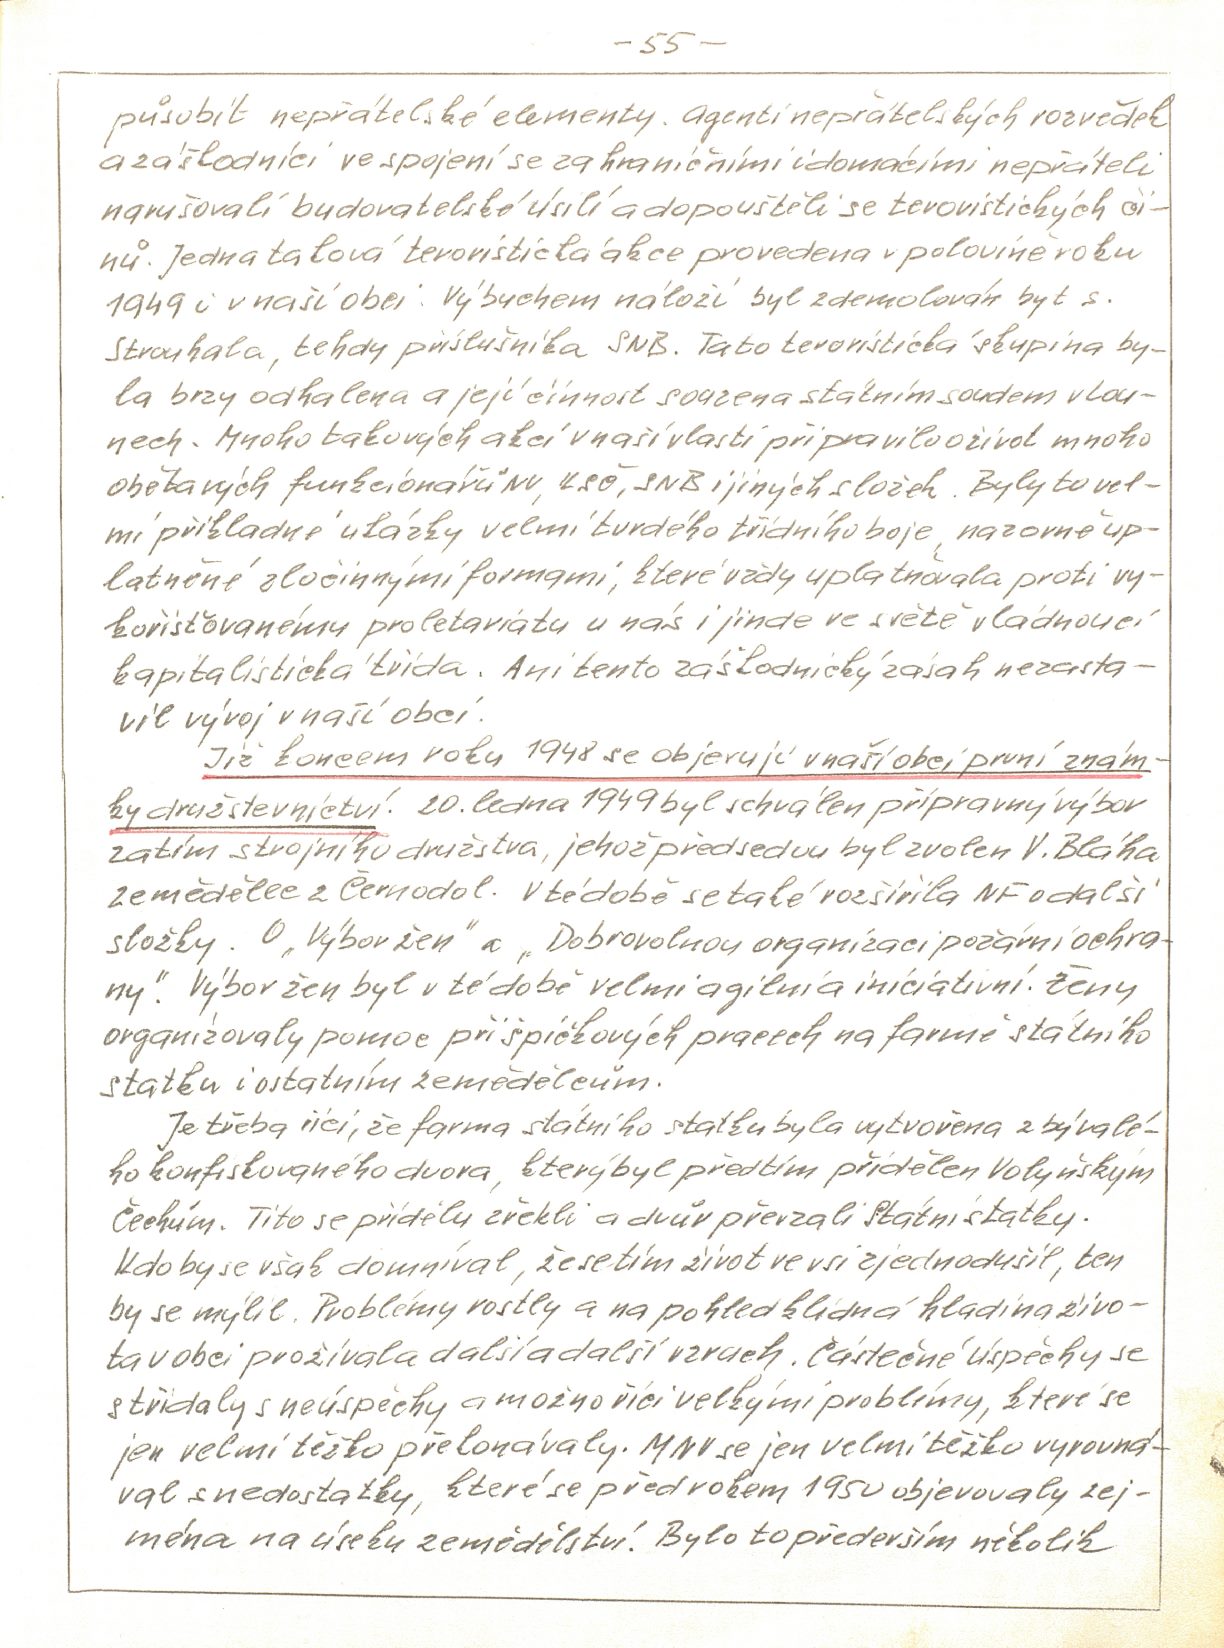 - 55 -
působit nepřátelské elementy. Agenti nepřátelských rozvědek
a záškodníci ve spojení se zahraničními i domácími nepřáteli
narušovali budovatelské úsilí a dopouštěli se teroristických či-
nů. Jedna taková teroristická akce provedena v polovině roku
1949 i v naší obci. Výbuchem náloží byl zdemolován byt s.
Strouhala, tehdy příslušníka SNB. Tato teroristická skupina by-
la brzy odhalena a její činnost souzena státním soudem v Lou-
nech. Mnoho takových akcí v naší vlasti připravilo o život mnoho
obětavých funkcionářů NV, KSČ, SNB i jiných složek. Byly to vel-
mi příkladné ukázky velmi tvrdého třídního boje, názorně up-
latněné zločinnými formami, které vždy uplatňovala proti vy-
kořisťovanému proletariátu u nás i jinde ve světě vládnoucí
kapitalistická třída. Ani tento záškodnický zásah nezasta-
vil vývoj v naší obci.
Již koncem roku 1948 se objevují v naší obci první znám-
ky družstevnictví. 20. ledna 1949 byl schválen přípravný výbor
zatím strojního družstva, jehož předsedou byl zvolen V. Bláha
zemědělec z Černodol. V té době se také rozšířila NF o další
složky. O „Výbor žen" a „Dobrovolnou organizaci požární ochra-
ny". Výbor žen byl v té době velmi agilní a iniciativní. Ženy
organizovaly pomoc při špičkových pracech na farmě státního
statku i ostatním zemědělcům.
Je třeba říci, že farma státního statku byla vytvořena z bývalé-
ho konfiskovaného dvora, který byl předtím přidělen Volyňským
Čechům. Tito se přídělu zřekli a dvůr převzali Státní statky.
Kdo by se však domníval, že se tím život ve vsi zjednodušil, ten
by se mýlil. Problémy rostly a na pohled klidná hladina živo-
ta v obci prožívala další a další vzruch. Částečné úspěchy se
střídaly s neúspěchy a možno říci velkými problémy, které se
jen velmi těžko překonávaly. MNV se jen velmi těžko vyrovná-
val s nedostatky, které se před rokem 1950 objevovaly zej-
ména na úseku zemědělství. Bylo to především několik